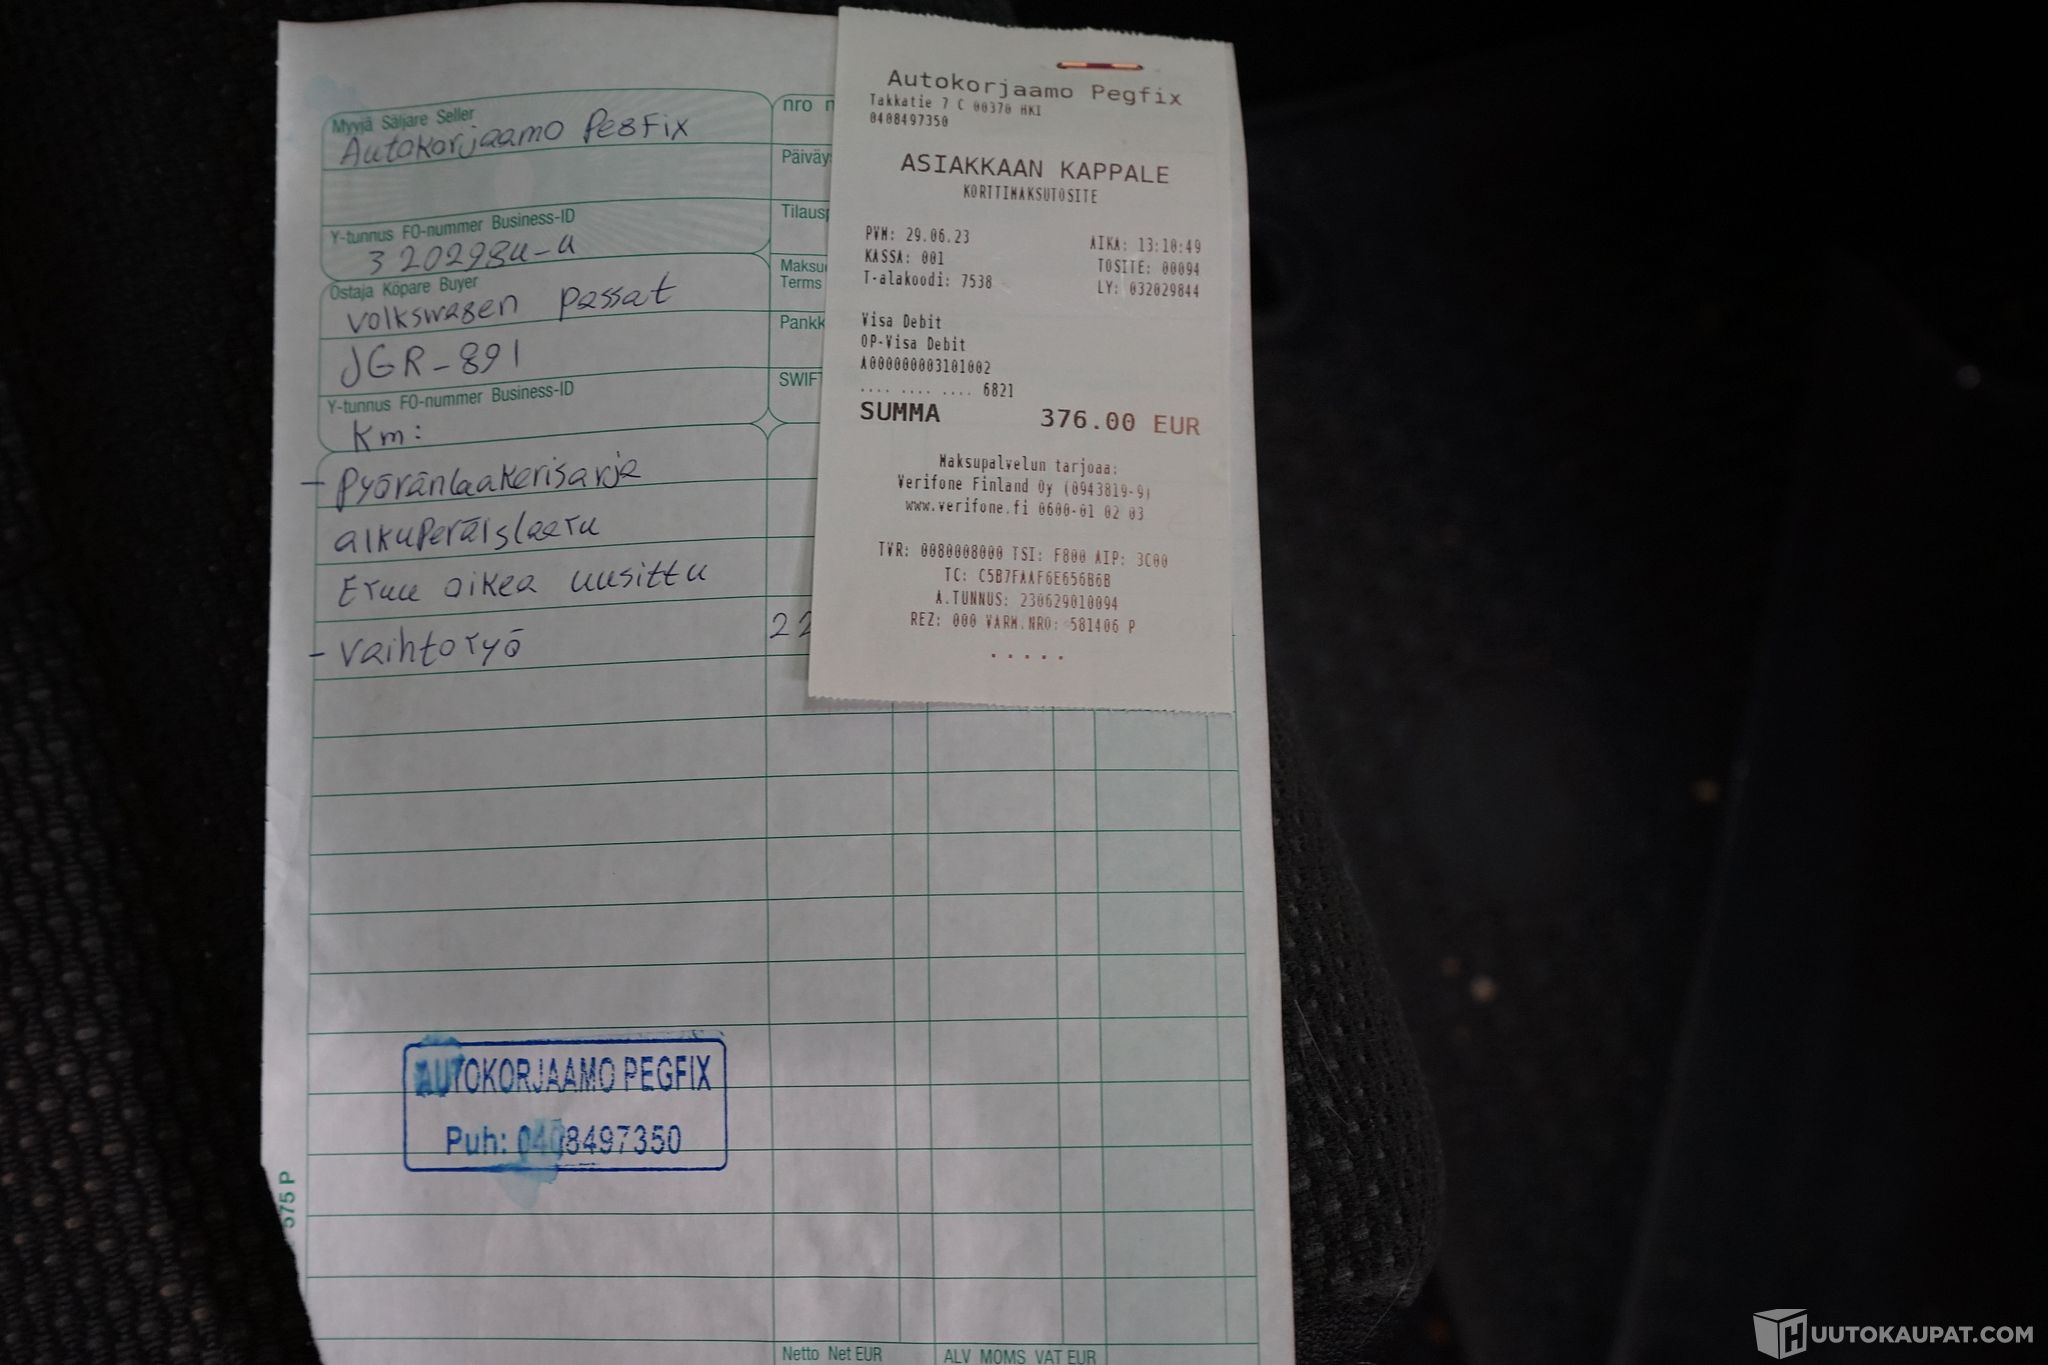 Myyjä Säljare Seller
Autokorjaamo Pegfix
Y-tunnus FO-nummer Business-ID
3202984-4
Ostaja Köpare Buyer
Volkswagen passat
JGR-891
Y-tunnus FO-nummer Business-ID
Km:
- Pyöränlaakerisarja
alkuperäislaatu
Etuu oikea uusittu
- Vaihtotyö
22
nro
Terms
AUTOKORJAAMO PEGFIX
Puh: 0408497350
575 P
Netto Net EUR
ALV MOMS VAT EUR
Autokorjaamo Pegfix
Takkatie 7 C 00370 HKI
0408497350
ASIAKKAAN KAPPALE
KORTTIMAKSUTOSITE
PVM: 29.06.23 AIKA: 13:10:49
KASSA: 001 TOSITE: 00094
T-alakoodi: 7538 LY: 032029844
Visa Debit
OP-Visa Debit
A0000000031010​02
.... .... .... 6821
SUMMA 376.00 EUR
Maksupalvelun tarjoaa:
Verifone Finland Oy (0943819-9)
www.verifone.fi 0600-01 02 03
TVR: 0080008000 TSI: F800 AIP: 3C00
TC: C5B7FAAF6E656B6B
A.TUNNUS: 230629010094
REZ: 000 VARM.NRO: 581406 P
.....
HUUTOKAUPAT.COM